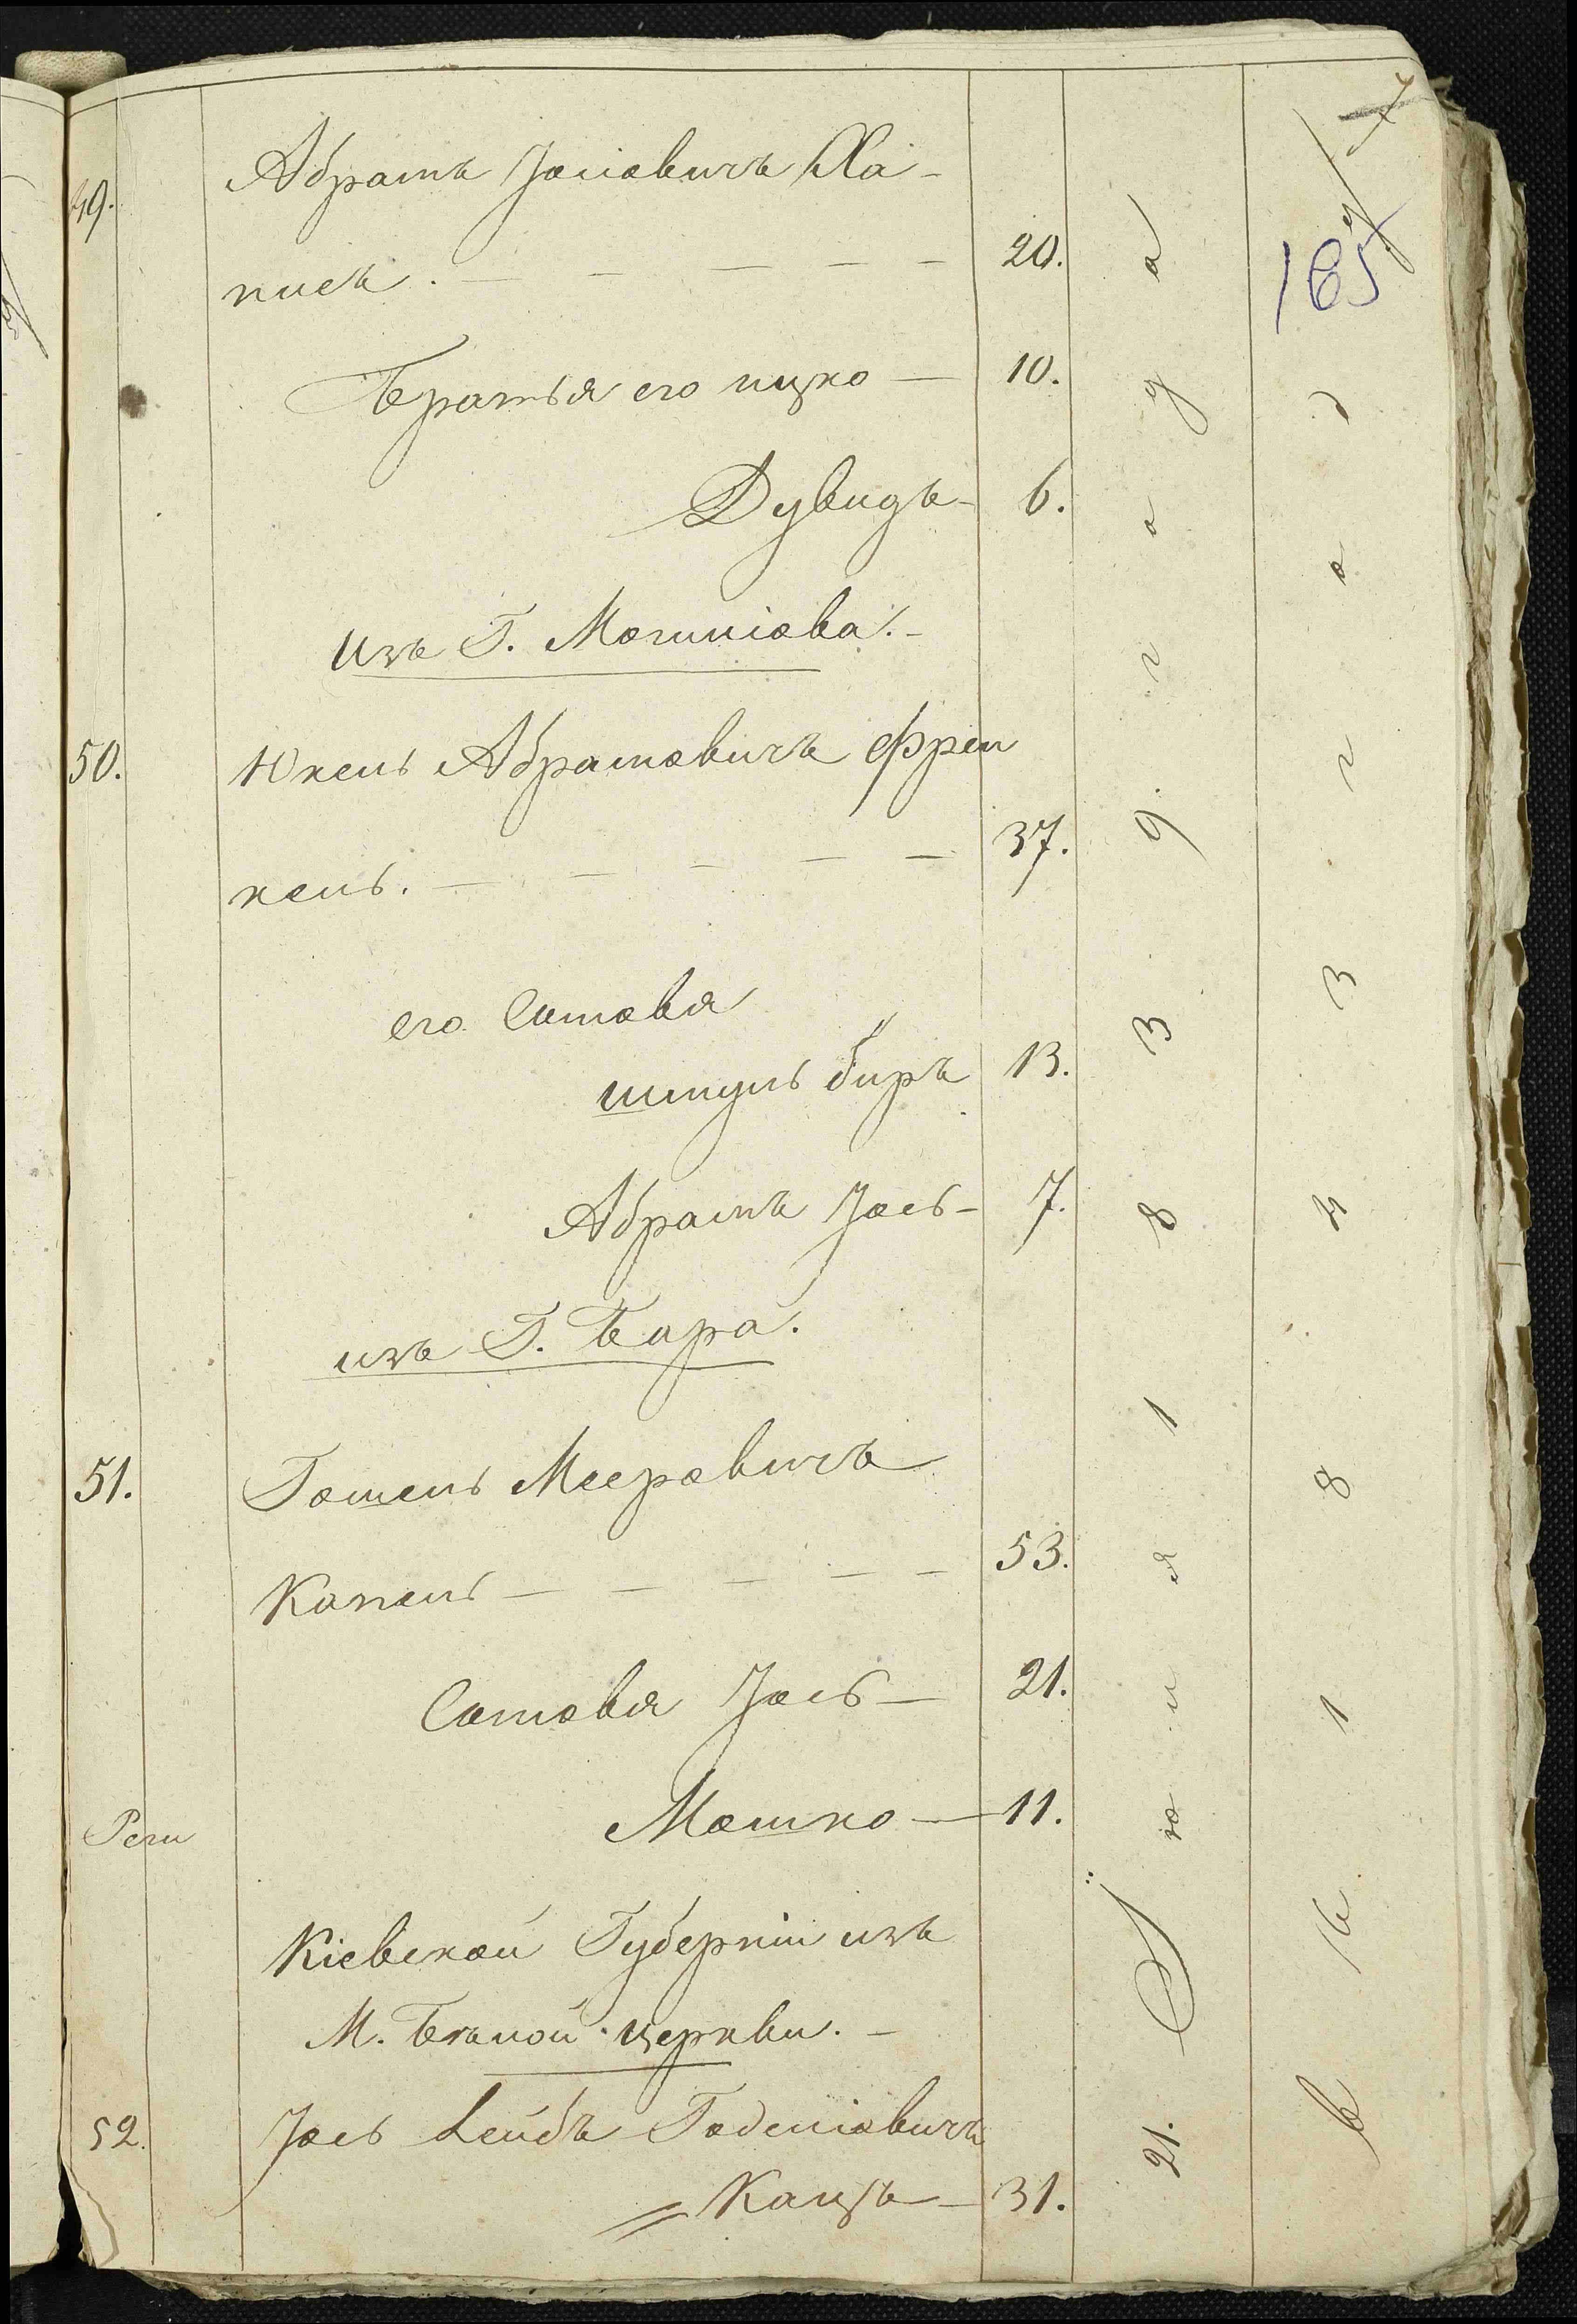 165
49. Абрамъ Іосіовичъ Ха-
писъ. — — — — — 20.
Братья его ицко — 10.
Дувидъ — 6.
изъ Г. Могиліова. —
50. Юкель Абрамовичъ Френ
кель. — — — — — 37.
его Сыновья
шмуль беръ 13.
Абрамъ Іось — 7.
изъ Г. Бара.
51. Гошель Мееровичъ
Капель — — — — — 53.
Сыновья Іось — 21.
Мошко — 11.
Кіевской Губерніи изъ
М. Белой церкви. —
52. Іось Лейбъ Годеліовичъ
Кацъ — 31.
21. Іюня 1839. года
въ 1843 году